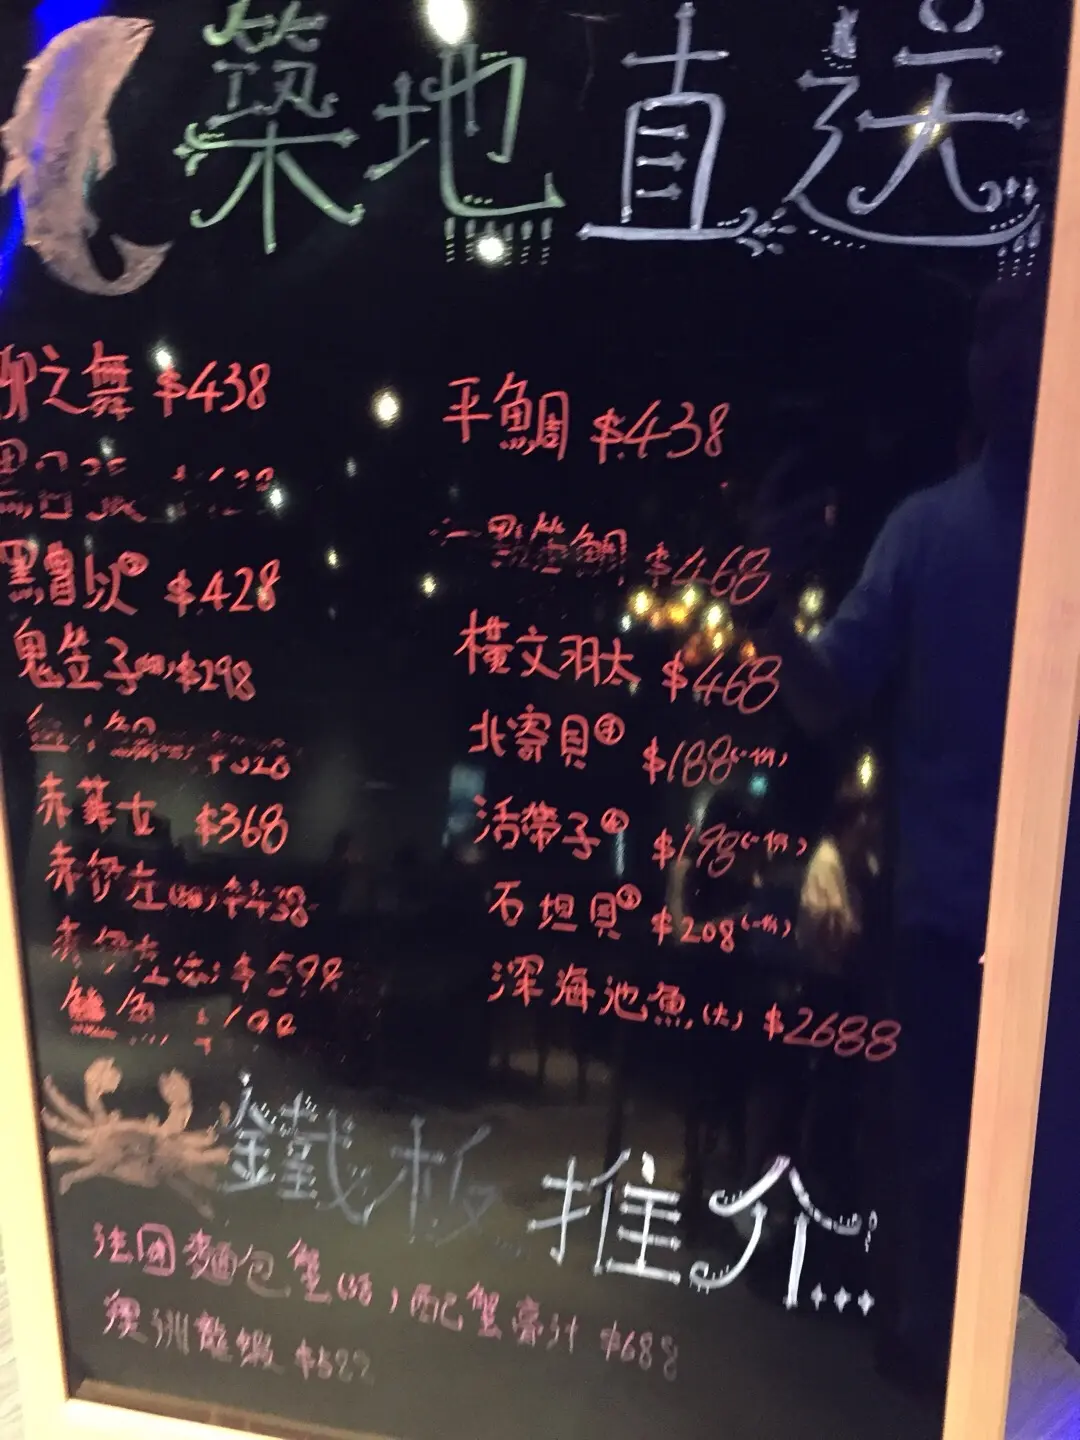 築地直送
柳之舞 $438
黑曹以 $428
鬼笠子 $298
赤葉女 $368
赤伊左 $438
赤伊左 $598
平鯛 $438
$468
橫文羽太 $468
北寄貝 $188(一份)
活帶子 $198(一份)
石坦貝 $208(一份)
深海池魚(大) $2688
鐵板推介...
法國麵包蟹(活)配蟹膏汁 $688
澳洲龍蝦